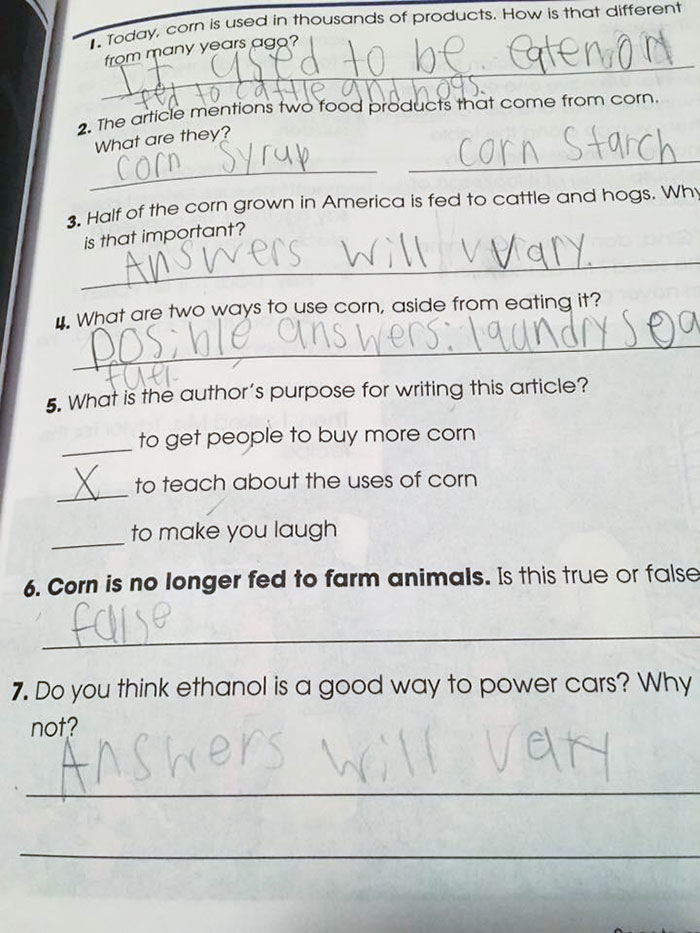 1. Today, corn is used in thousands of products. How is that different
from many years ago?
It used to be eaten or
fed to cattle and hogs.
2. The article mentions two food products that come from corn.
What are they?
corn syrup corn starch
3. Half of the corn grown in America is fed to cattle and hogs. Why
is that important?
Answers will vary.
4. What are two ways to use corn, aside from eating it?
posible answers: laundry soa
fuel.
5. What is the author's purpose for writing this article?
to get people to buy more corn
X to teach about the uses of corn
to make you laugh
6. Corn is no longer fed to farm animals. Is this true or false
false
7. Do you think ethanol is a good way to power cars? Why
not?
Answers will vary